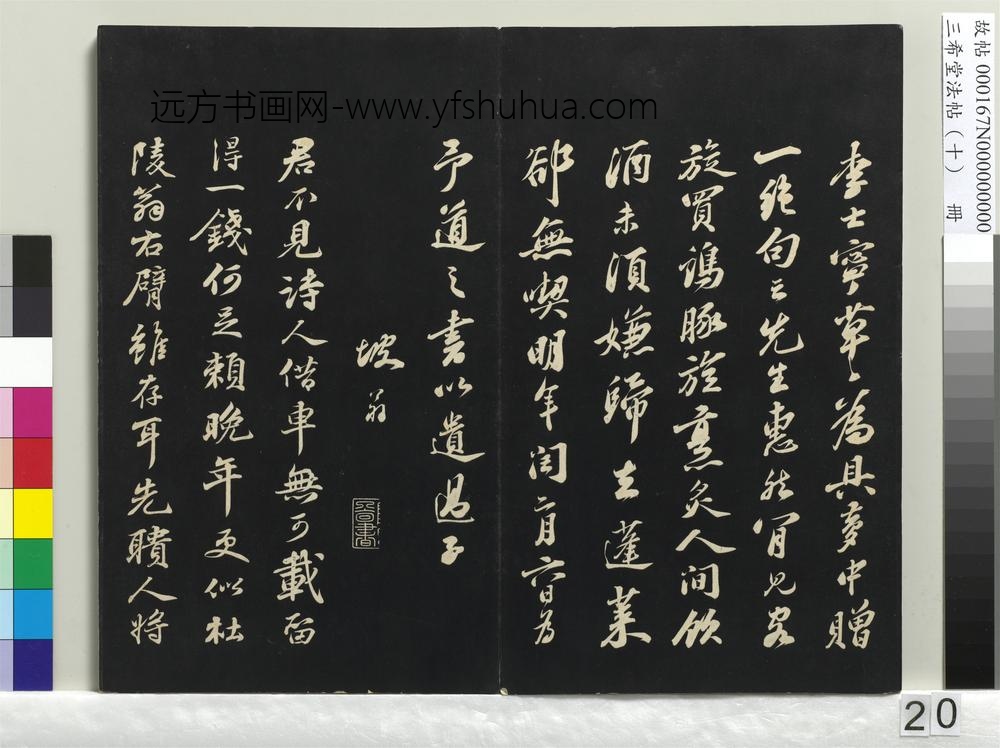 远方书画网-www.yfshuhua.com
李士寧草草為具夢中贈
一絕句云先生惠然肯見客
旋買鷄豚旋烹炙人間飲
酒未須嫌歸去蓬萊
卻無喫明年閏二月六日為
予道之書以遺過子
坡翁
君不見詩人借車無可載留
得一錢何足賴晚年更似杜
陵翁右臂雖存耳先聵人將
故帖 000167N000000000
三希堂法帖（十） 冊
20